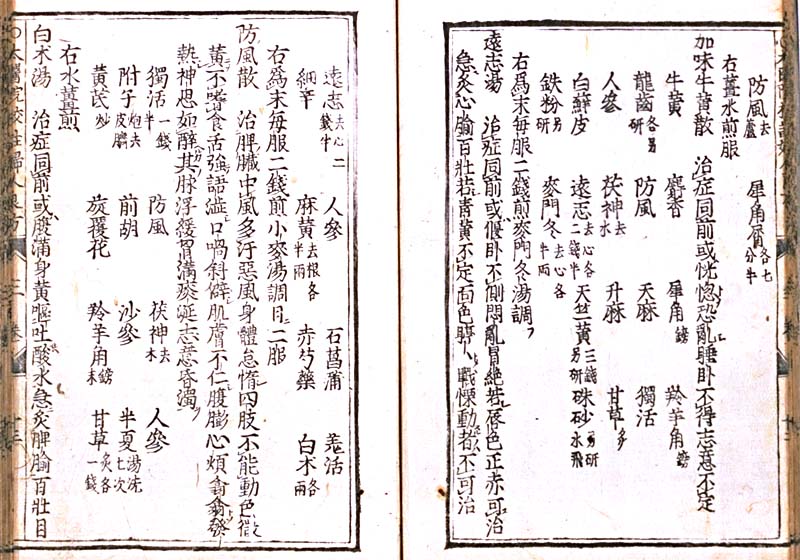 防風去蘆　犀角屑各七分半
右薑水煎服
加味牛黃散　治症同前或恍惚恐亂睡卧不得志意不定
牛黃　麝香　犀角鎊　羚羊角鎊
龍齒各另研　防風　天麻　獨活
人參　茯神去木　升麻　甘草炙
白鮮皮　遠志去心各二錢半　天竺黃三錢另研　硃砂另研水飛
鐵粉另研　麥門冬去心各半兩
右爲末每服二錢煎麥門冬湯調
遠志湯　治症同前或偃卧不側悶亂冒絕若唇色正赤可治
急灸心腧百壯若青黃不定面色戰慄動者不可治
遠志去心二錢半　人參　石菖蒲　羌活
細辛　麻黃去根各半兩　赤芍藥　白朮各兩
右爲末每服二錢煎小麥湯調日二服
防風散　治脾臟中風多汗惡風身體怠惰四肢不能動色微
黃不嗜食舌強語澁口喎斜僻肌膚不仁腹膨心煩翕翕發
熱神思如醉其脉浮緩胃滿痰涎志意昏濁
獨活一錢半　防風　茯神去木　人參
附子炮去皮臍　前胡　沙參　半夏湯洗七次
黃芪炒　旋覆花　羚羊角鎊末　甘草炙各一錢
右水薑煎
白朮湯　治症同前或脹滿身黃嘔吐酸水急灸脾腧百壯目
太醫院校註婦人良方